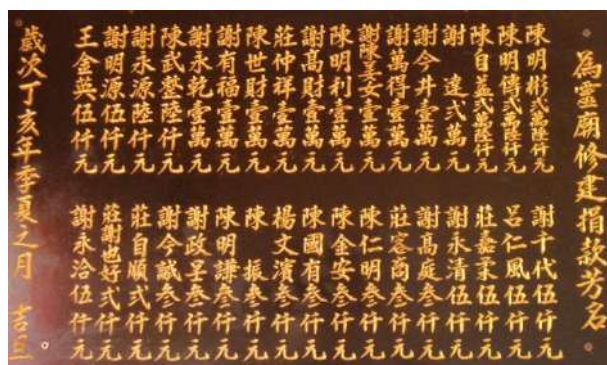 為靈廟修建捐款芳名
陳明彬弍萬陸仟元
陳明傳弍萬陸仟元
陳自益弍萬陸仟元
謝 達弍萬元
謝今井壹萬元
謝萬得壹萬元
謝陳姜女壹萬元
陳明利壹萬元
謝高財壹萬元
莊仲祥壹萬元
陳世財壹萬元
謝有福壹萬元
謝永乾壹萬元
陳武整陸仟元
謝永源陸仟元
謝明源伍仟元
王金英伍仟元
謝十代伍仟元
呂仁風伍仟元
莊嘉柔伍仟元
謝永清伍仟元
謝高庭叁仟元
莊容商叁仟元
陳仁明叁仟元
陳金安叁仟元
陳國有叁仟元
楊文濱叁仟元
陳 振叁仟元
陳明謙叁仟元
謝政呈叁仟元
謝今誠叁仟元
莊自順弍仟元
莊謝也好弍仟元
謝永洽伍仟元
歲次丁亥年季夏之月 吉旦